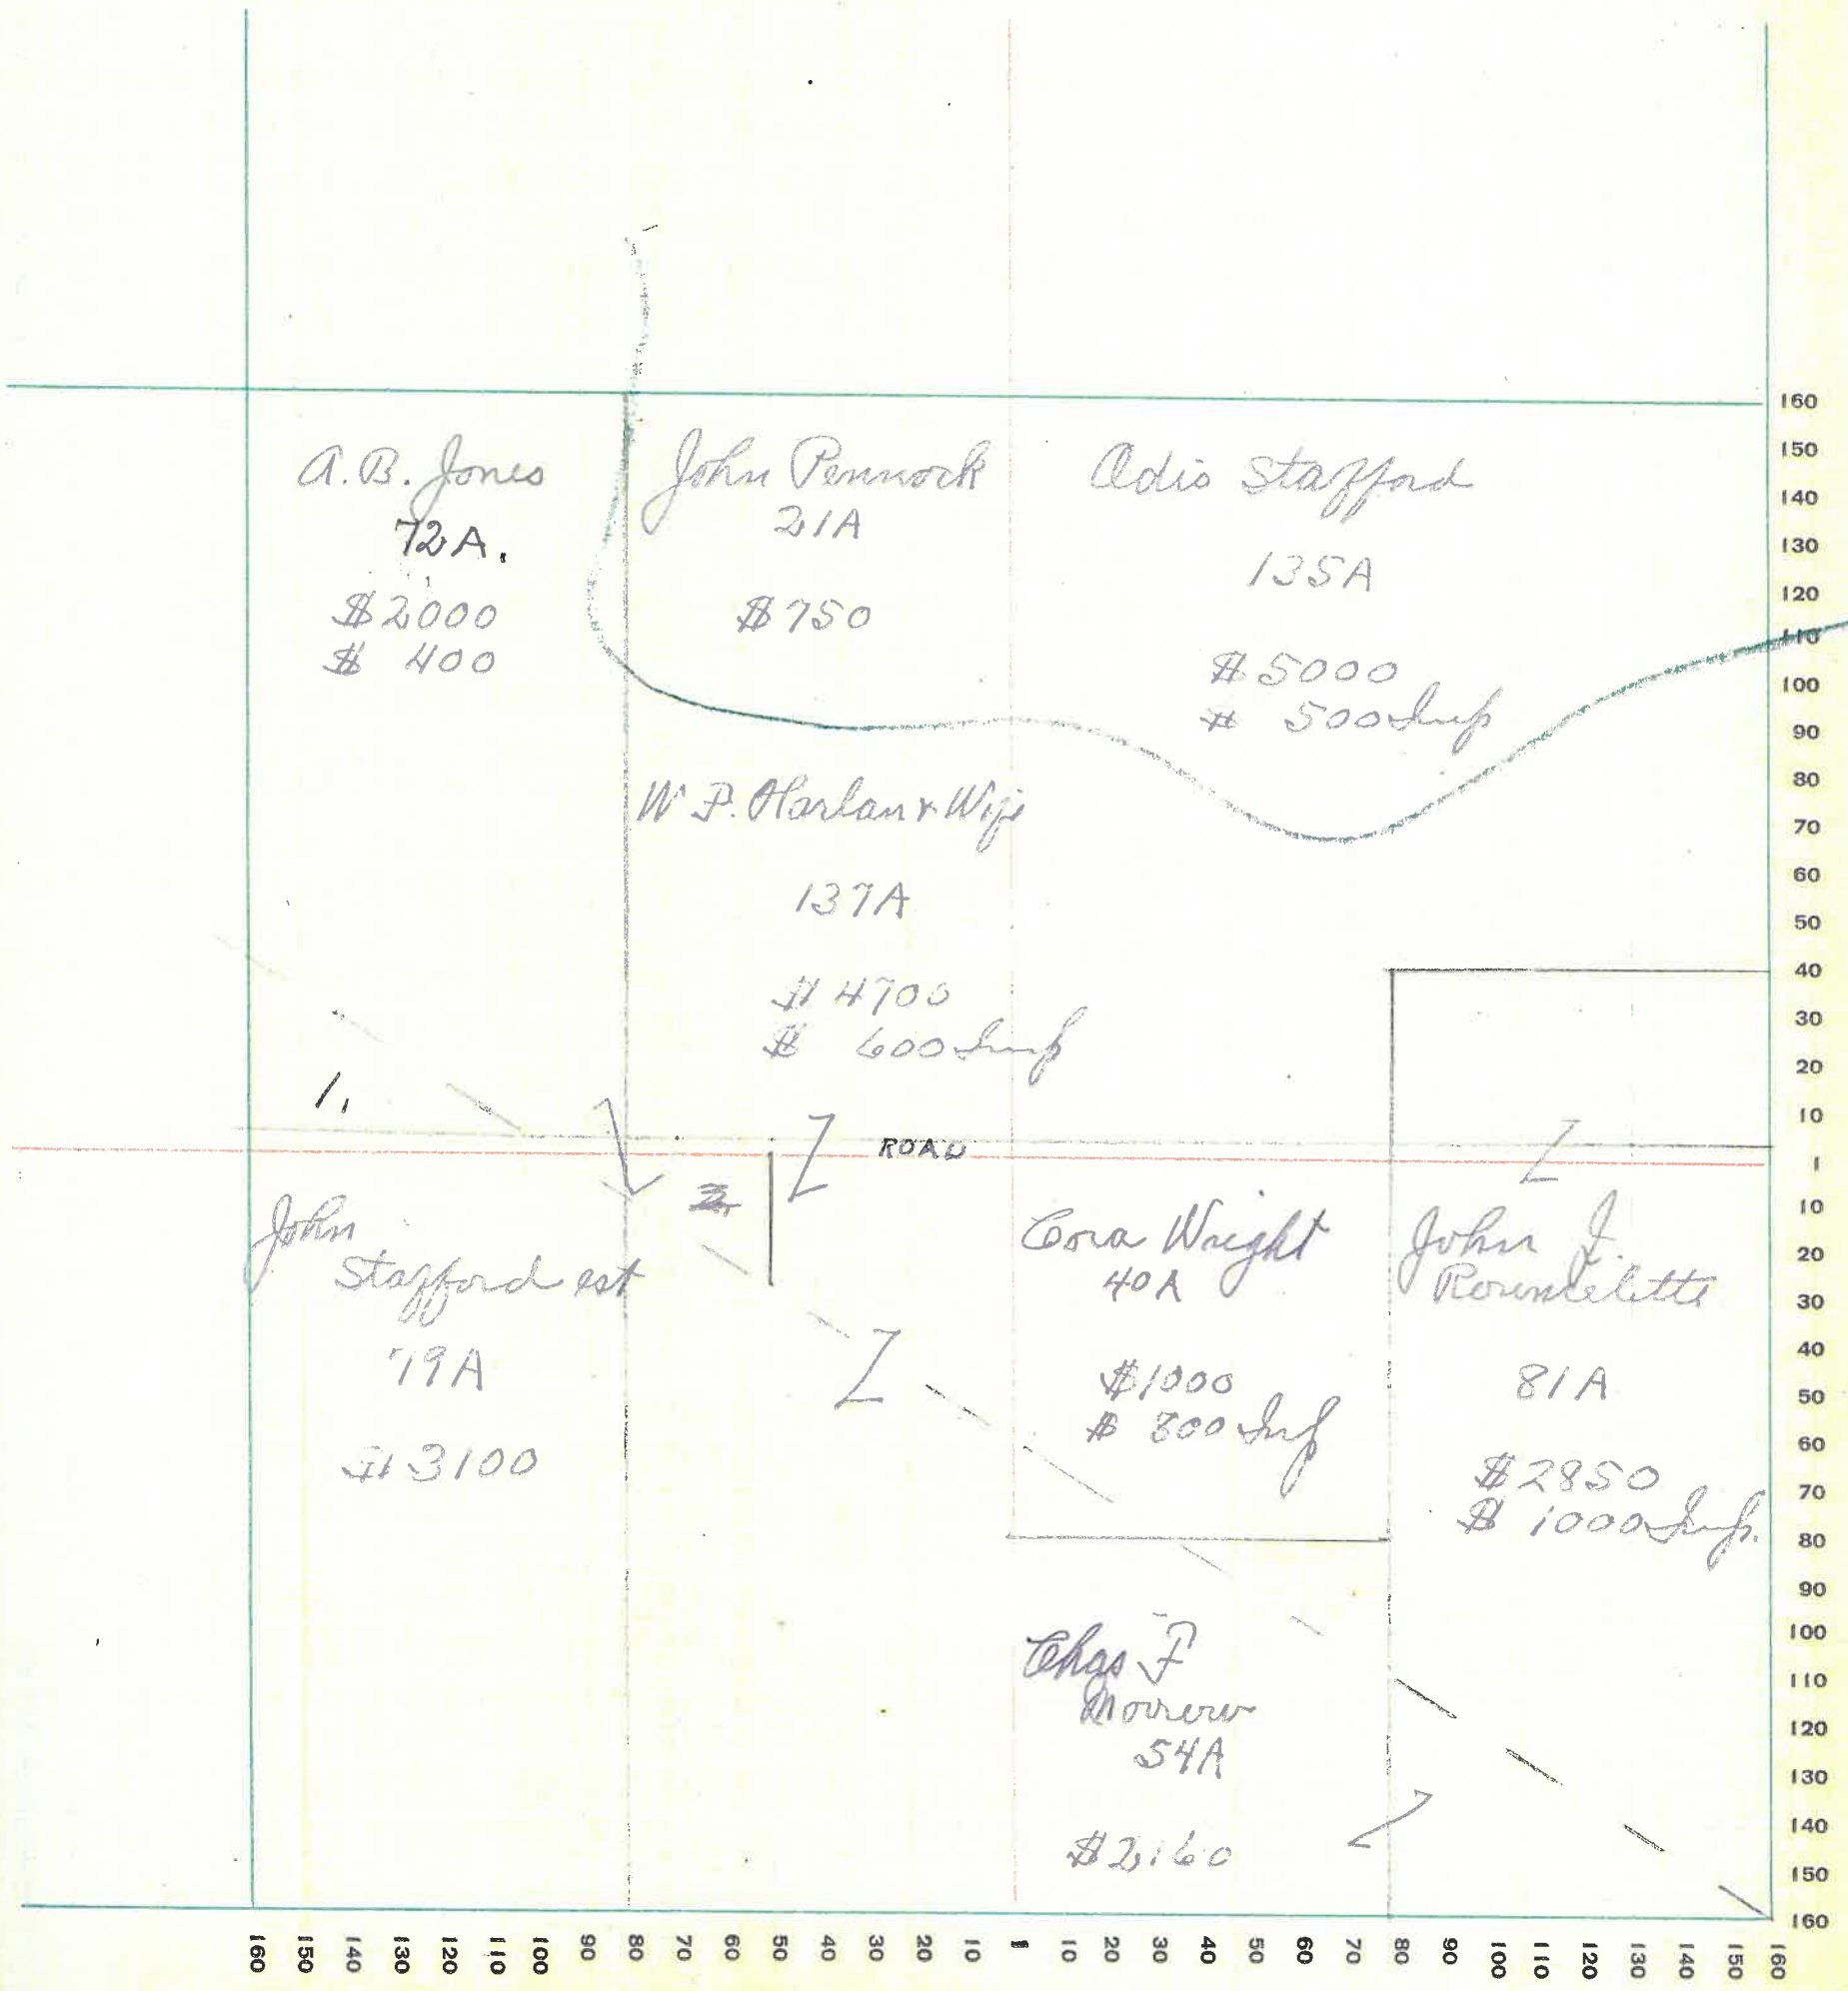 A.B. Jones
72A.
$2000
$ 400
John Pennock
21A
$750
Odis Stafford
135A
$5000
$ 500 Imp
W P. Harlan & Wife
137A
$4700
$ 600 Imp
1.
ROAD
2.
John
Stafford est
79A
$3100
Cora Wright
40A
$1000
$ 300 Imp
John J.
81A
$2850
$ 1000 Imp.
Chas F
Morrow
54A
$2160
160
150
140
130
120
110
100
90
80
70
60
50
40
30
20
10
1
10
20
30
40
50
60
70
80
90
100
110
120
130
140
150
160
160 150 140 130 120 110 100 90 80 70 60 50 40 30 20 10 1 10 20 30 40 50 60 70 80 90 100 110 120 130 140 150 160